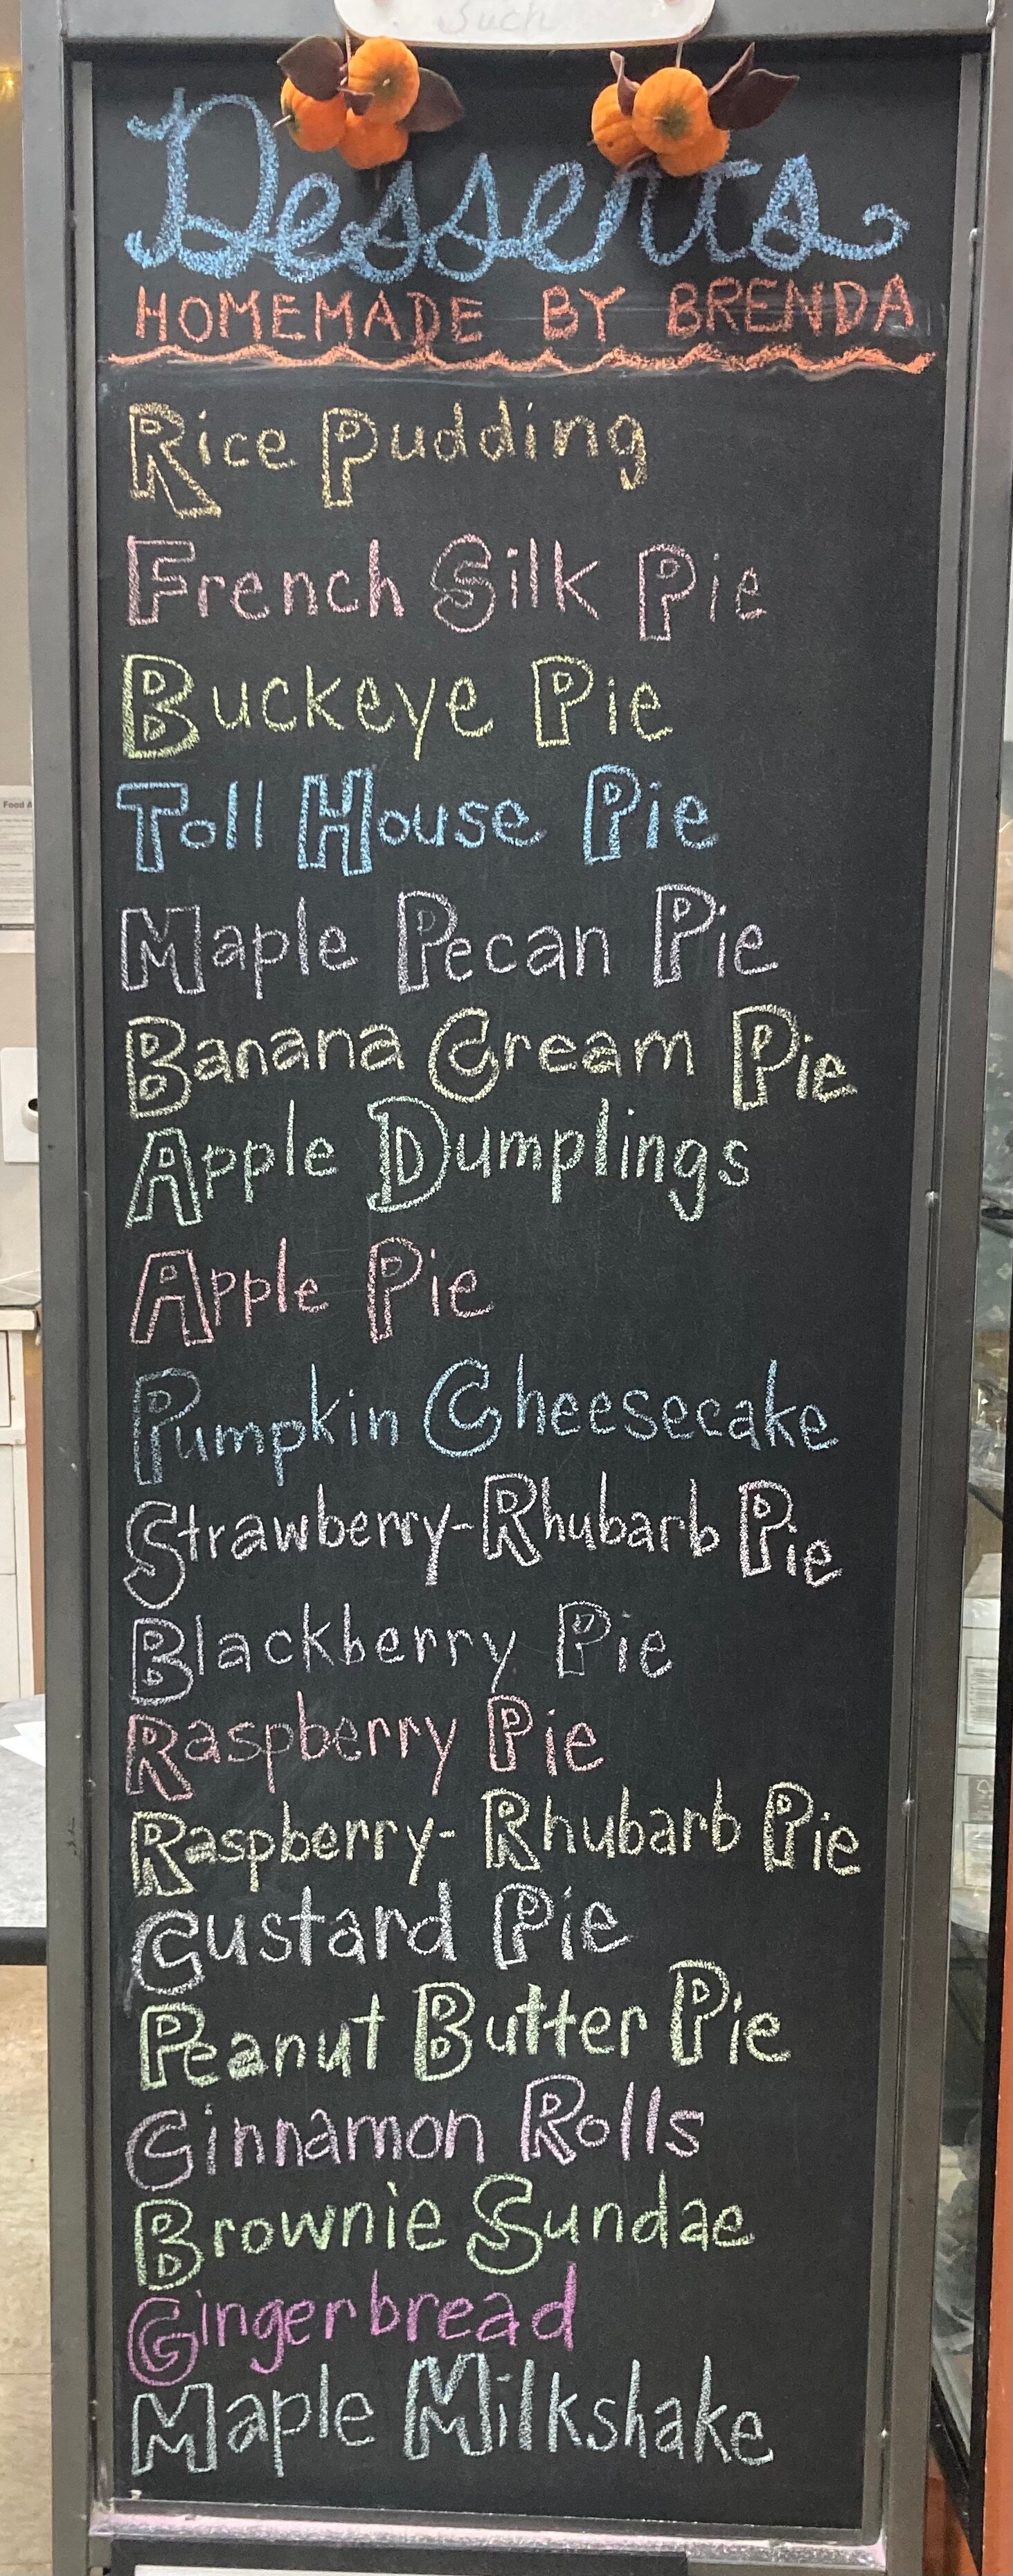 Such
Desserts
HOMEMADE BY BRENDA
Rice Pudding
French Silk Pie
Buckeye Pie
Toll House Pie
Maple Pecan Pie
Banana Cream Pie
Apple Dumplings
Apple Pie
Pumpkin Cheesecake
Strawberry-Rhubarb Pie
Blackberry Pie
Raspberry Pie
Raspberry-Rhubarb Pie
Custard Pie
Peanut Butter Pie
Cinnamon Rolls
Brownie Sundae
Gingerbread
Maple Milkshake
Food